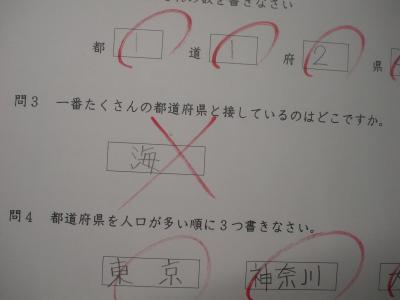 の数を書きなさい
都 1 道 1 府 2 県
問3 一番たくさんの都道府県と接しているのはどこですか。
海
問4 都道府県を人口が多い順に3つ書きなさい。
東京 神奈川